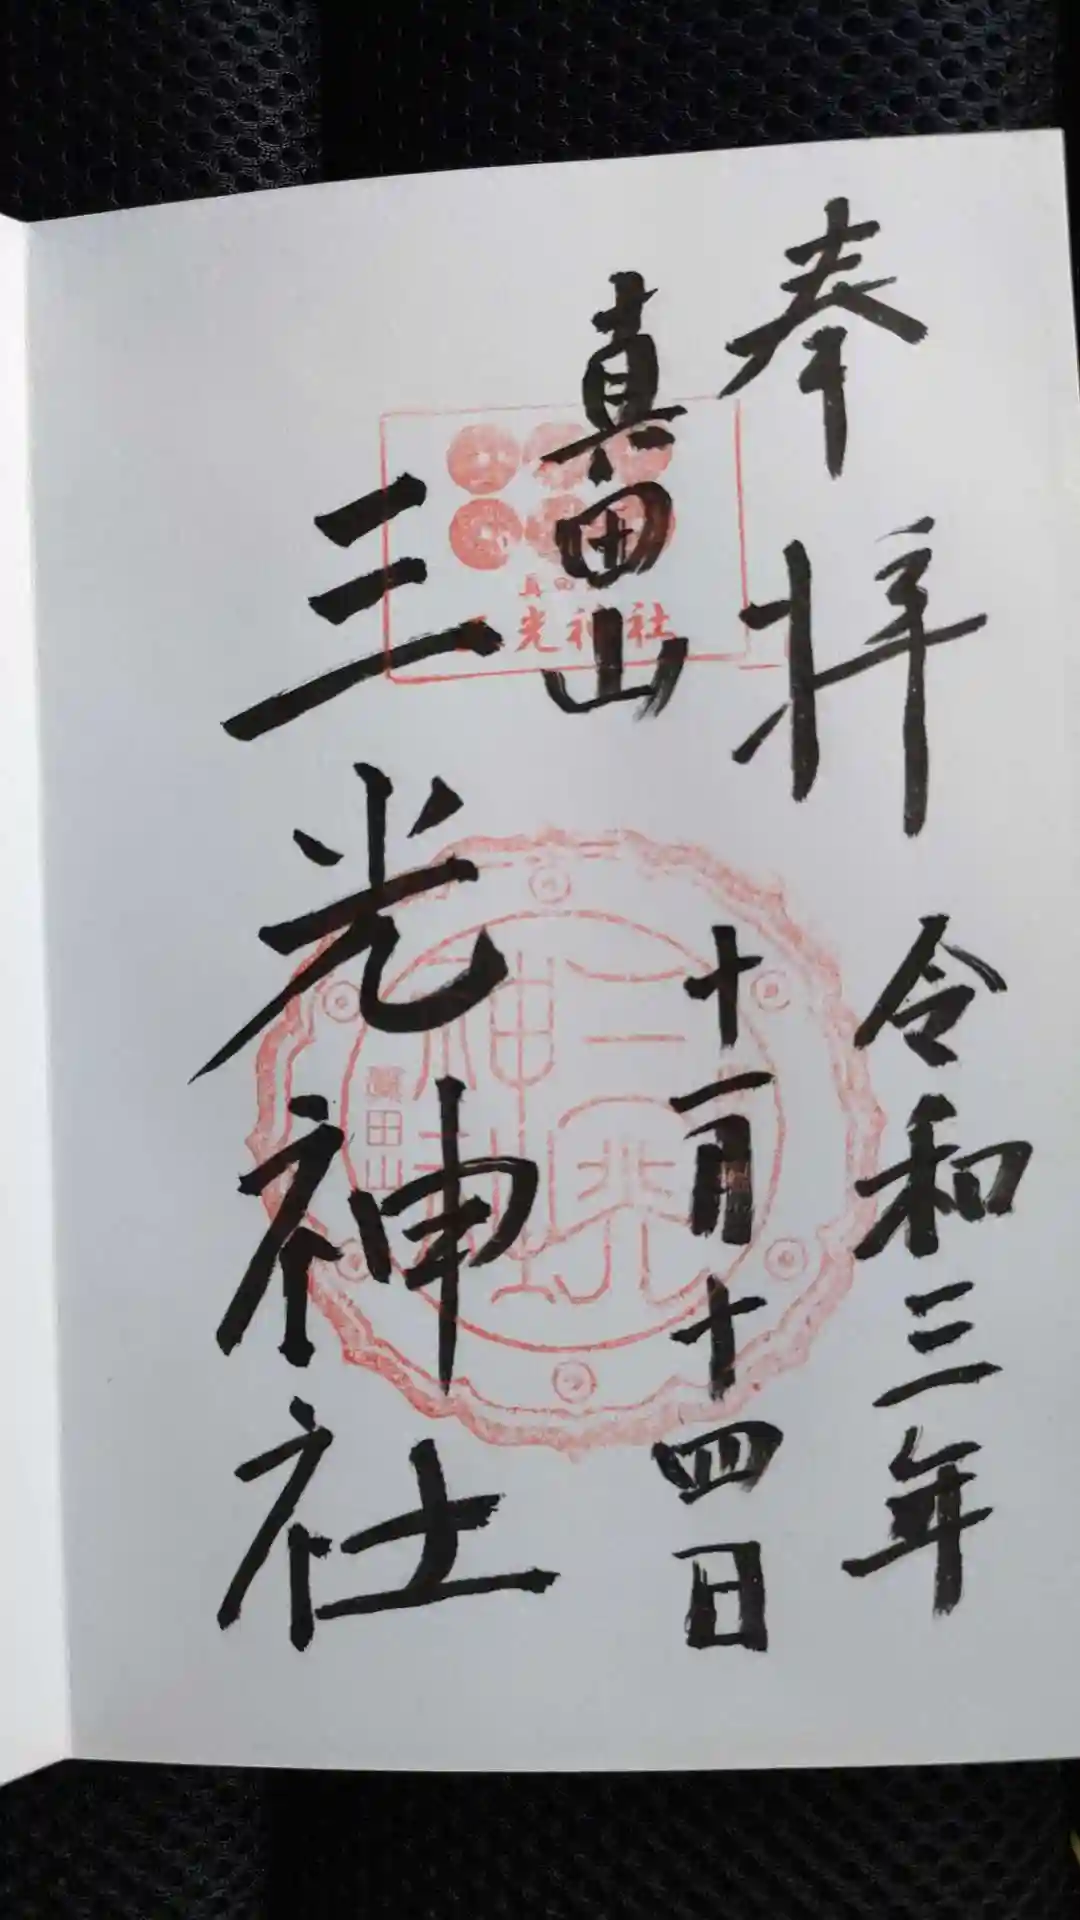 奉拝
令和三年
十一月十四日
真田山
三光神社
真田
光神社
神社
眞田山